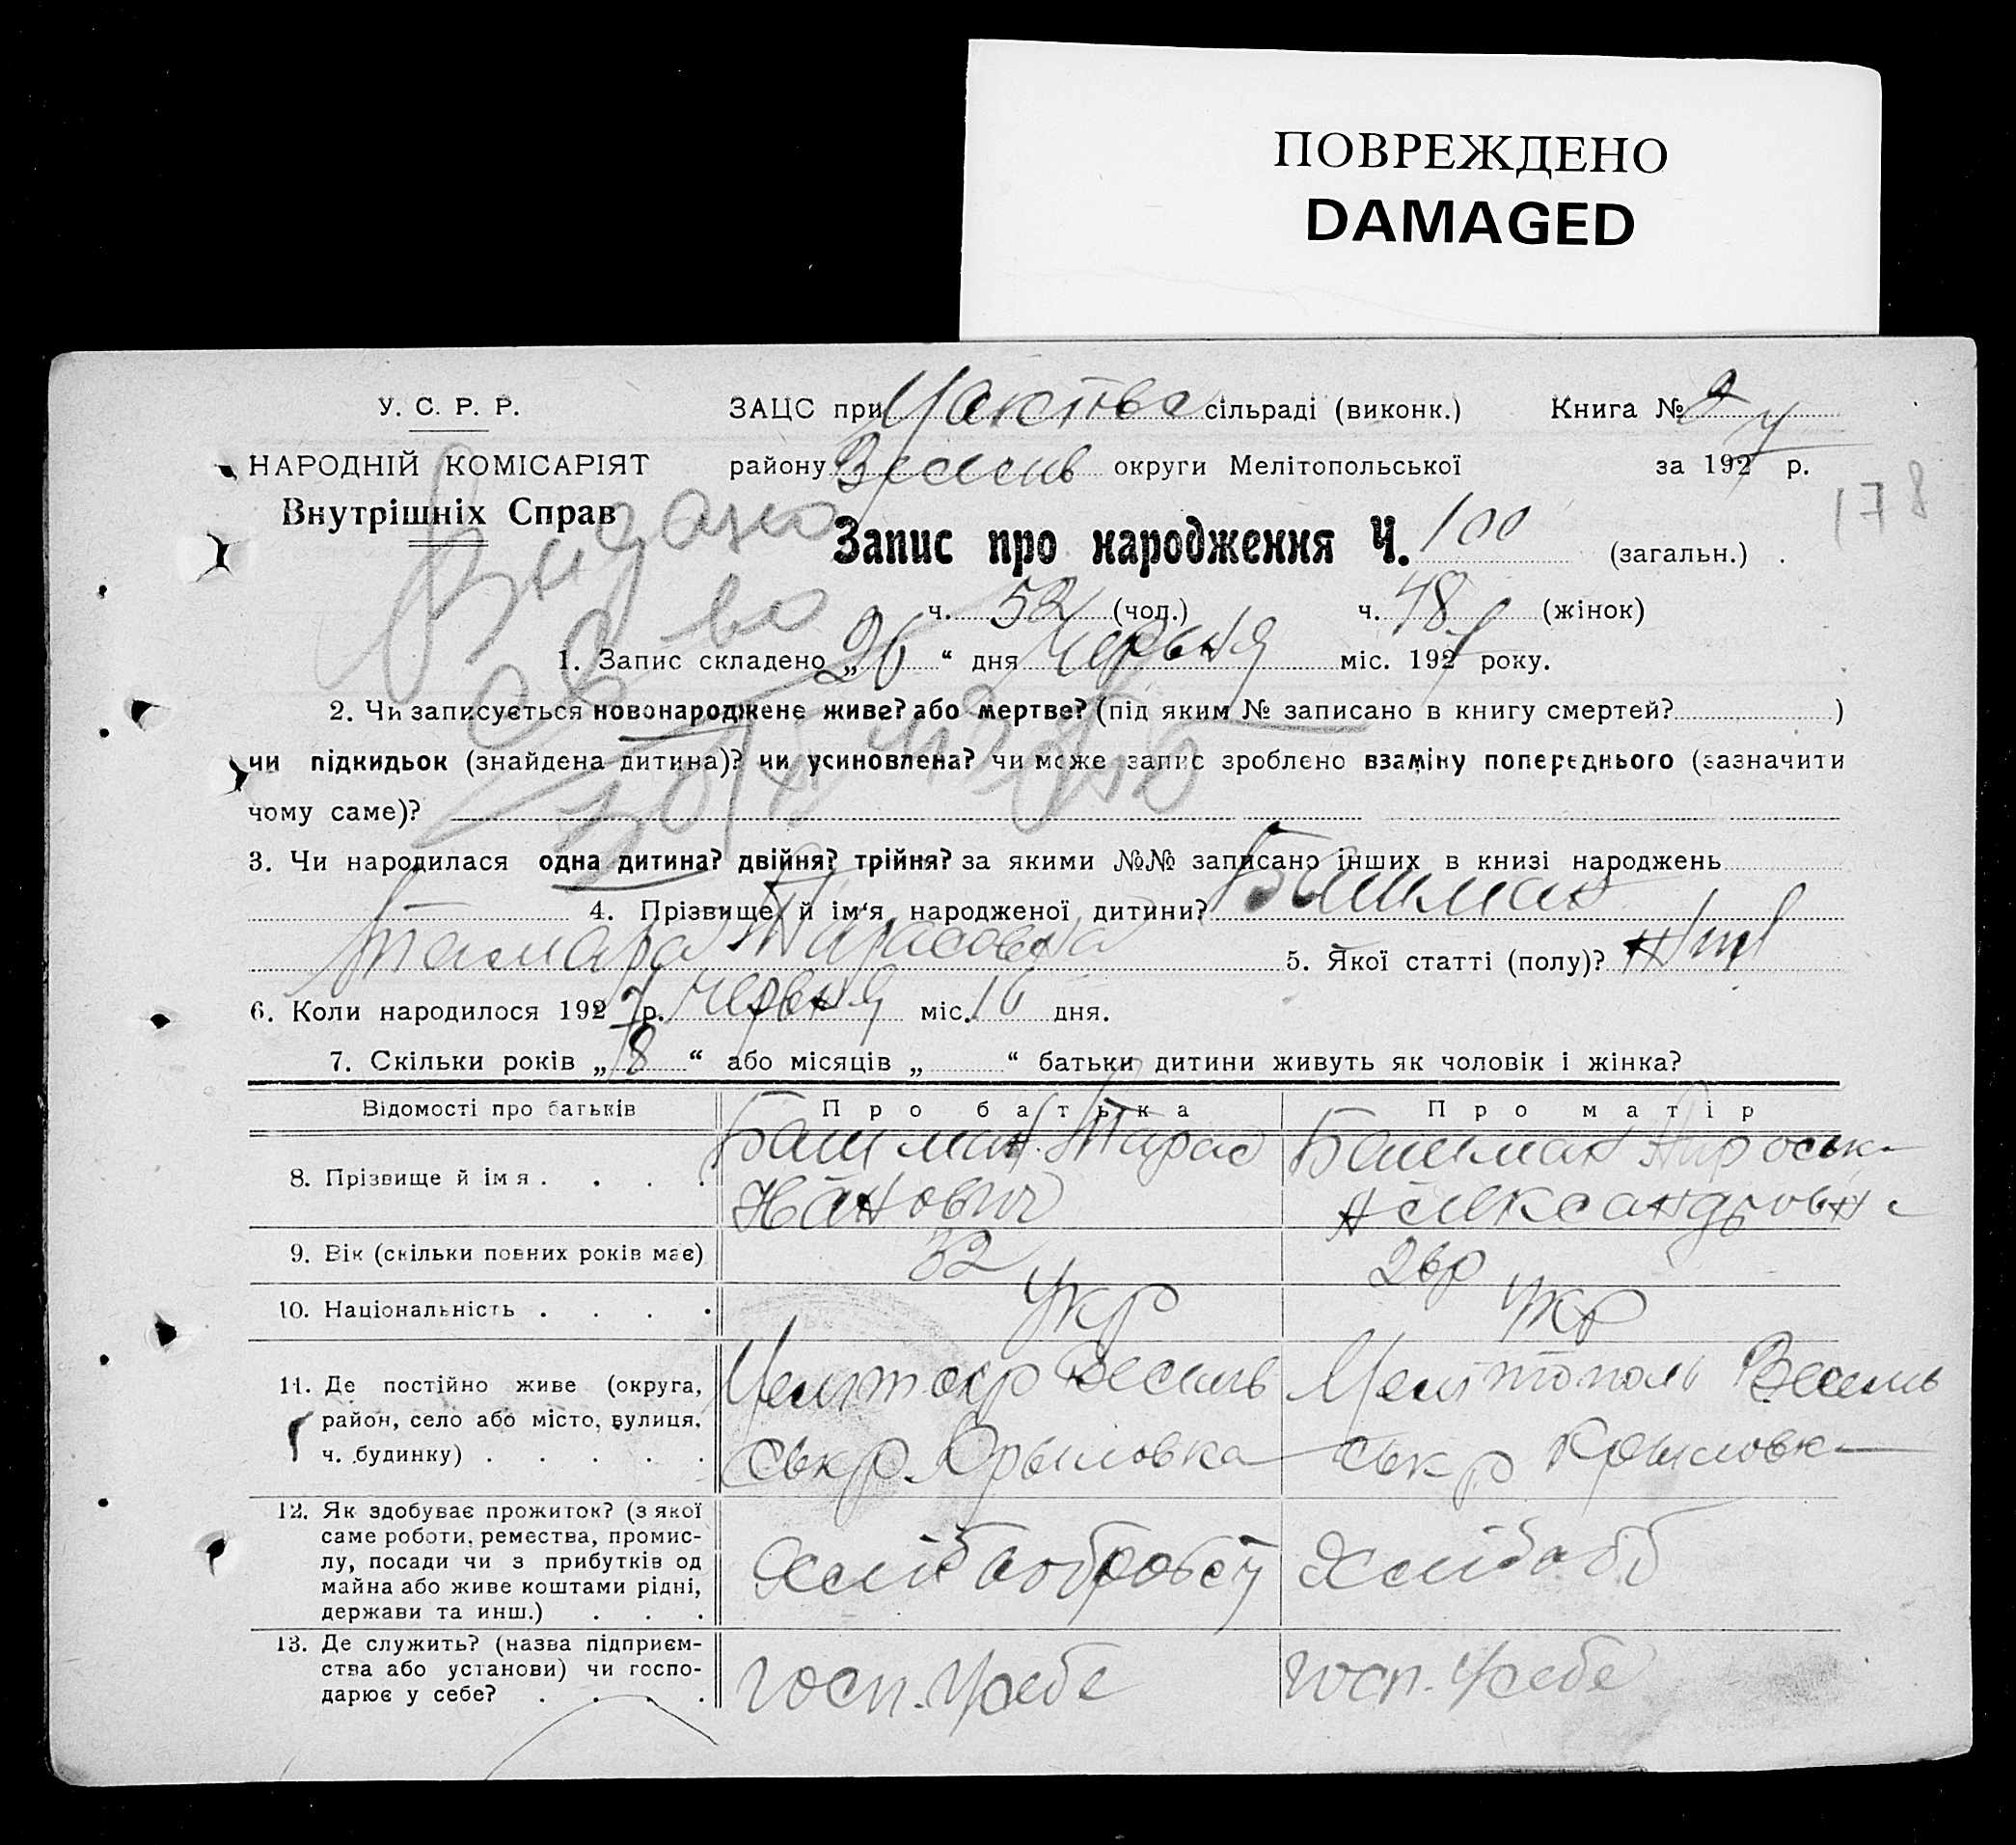 ПОВРЕЖДЕНО
DAMAGED
У. С. Р. Р. ЗАЦС при сільраді (виконк.) Книга №
НАРОДНІЙ КОМІСАРІЯТ району Веселів округи Мелітопольської за 1927 р.
178
Внутрішніх Справ
Видано
Запис про народження Ч. 100 (загальн.)
ч. 52 (чол.) ч. 48 (жінок)
1. Запис складено „26“ дня Червня міс. 1927 року.
2. Чи записується новонароджене живе? або мертве? (під яким № записано в книгу смертей? )
чи підкидьок (знайдена дитина)? чи усиновлена? чи може запис зроблено взаміну попереднього (зазначити
чому саме)?
3. Чи народилася одна дитина? двійня? трійня? за якими №№ записано інших в книзі народжень
4. Прізвище й ім‘я народженої дитини? Башмак
Тамара Тарасовна 5. Якої статті (полу)?
6. Коли народилося 1927 р. червня міс. 16 дня.
7. Скільки років „ 8 “ або місяців „ “ батьки дитини живуть як чоловік і жінка?
Відомості про батьків Про батька Про матір
8. Прізвище й імя . . . . Башмак Тарас Башмак
Иванович Александровна
9. Вік (скільки повних років має) 32 26 р
10. Національність . . . . Укр Укр
11. Де постійно живе (округа, Меліт окр Веселів Мелітополь Веселів
район, село або місто, вулиця, ськ р. Крыловка ськ р Крыловка
ч. будинку) . . . . .
12. Як здобуває прожиток? (з якої
саме роботи, ремества, промис-
лу, посади чи з прибутків од Хліборобств Хлібороб
майна або живе коштами рідні,
держави та инш.) . . .
13. Де служить? (назва підприєм-
ства або установи) чи госпо- госп. у себе госп. у себе
дарює у себе? . . . .